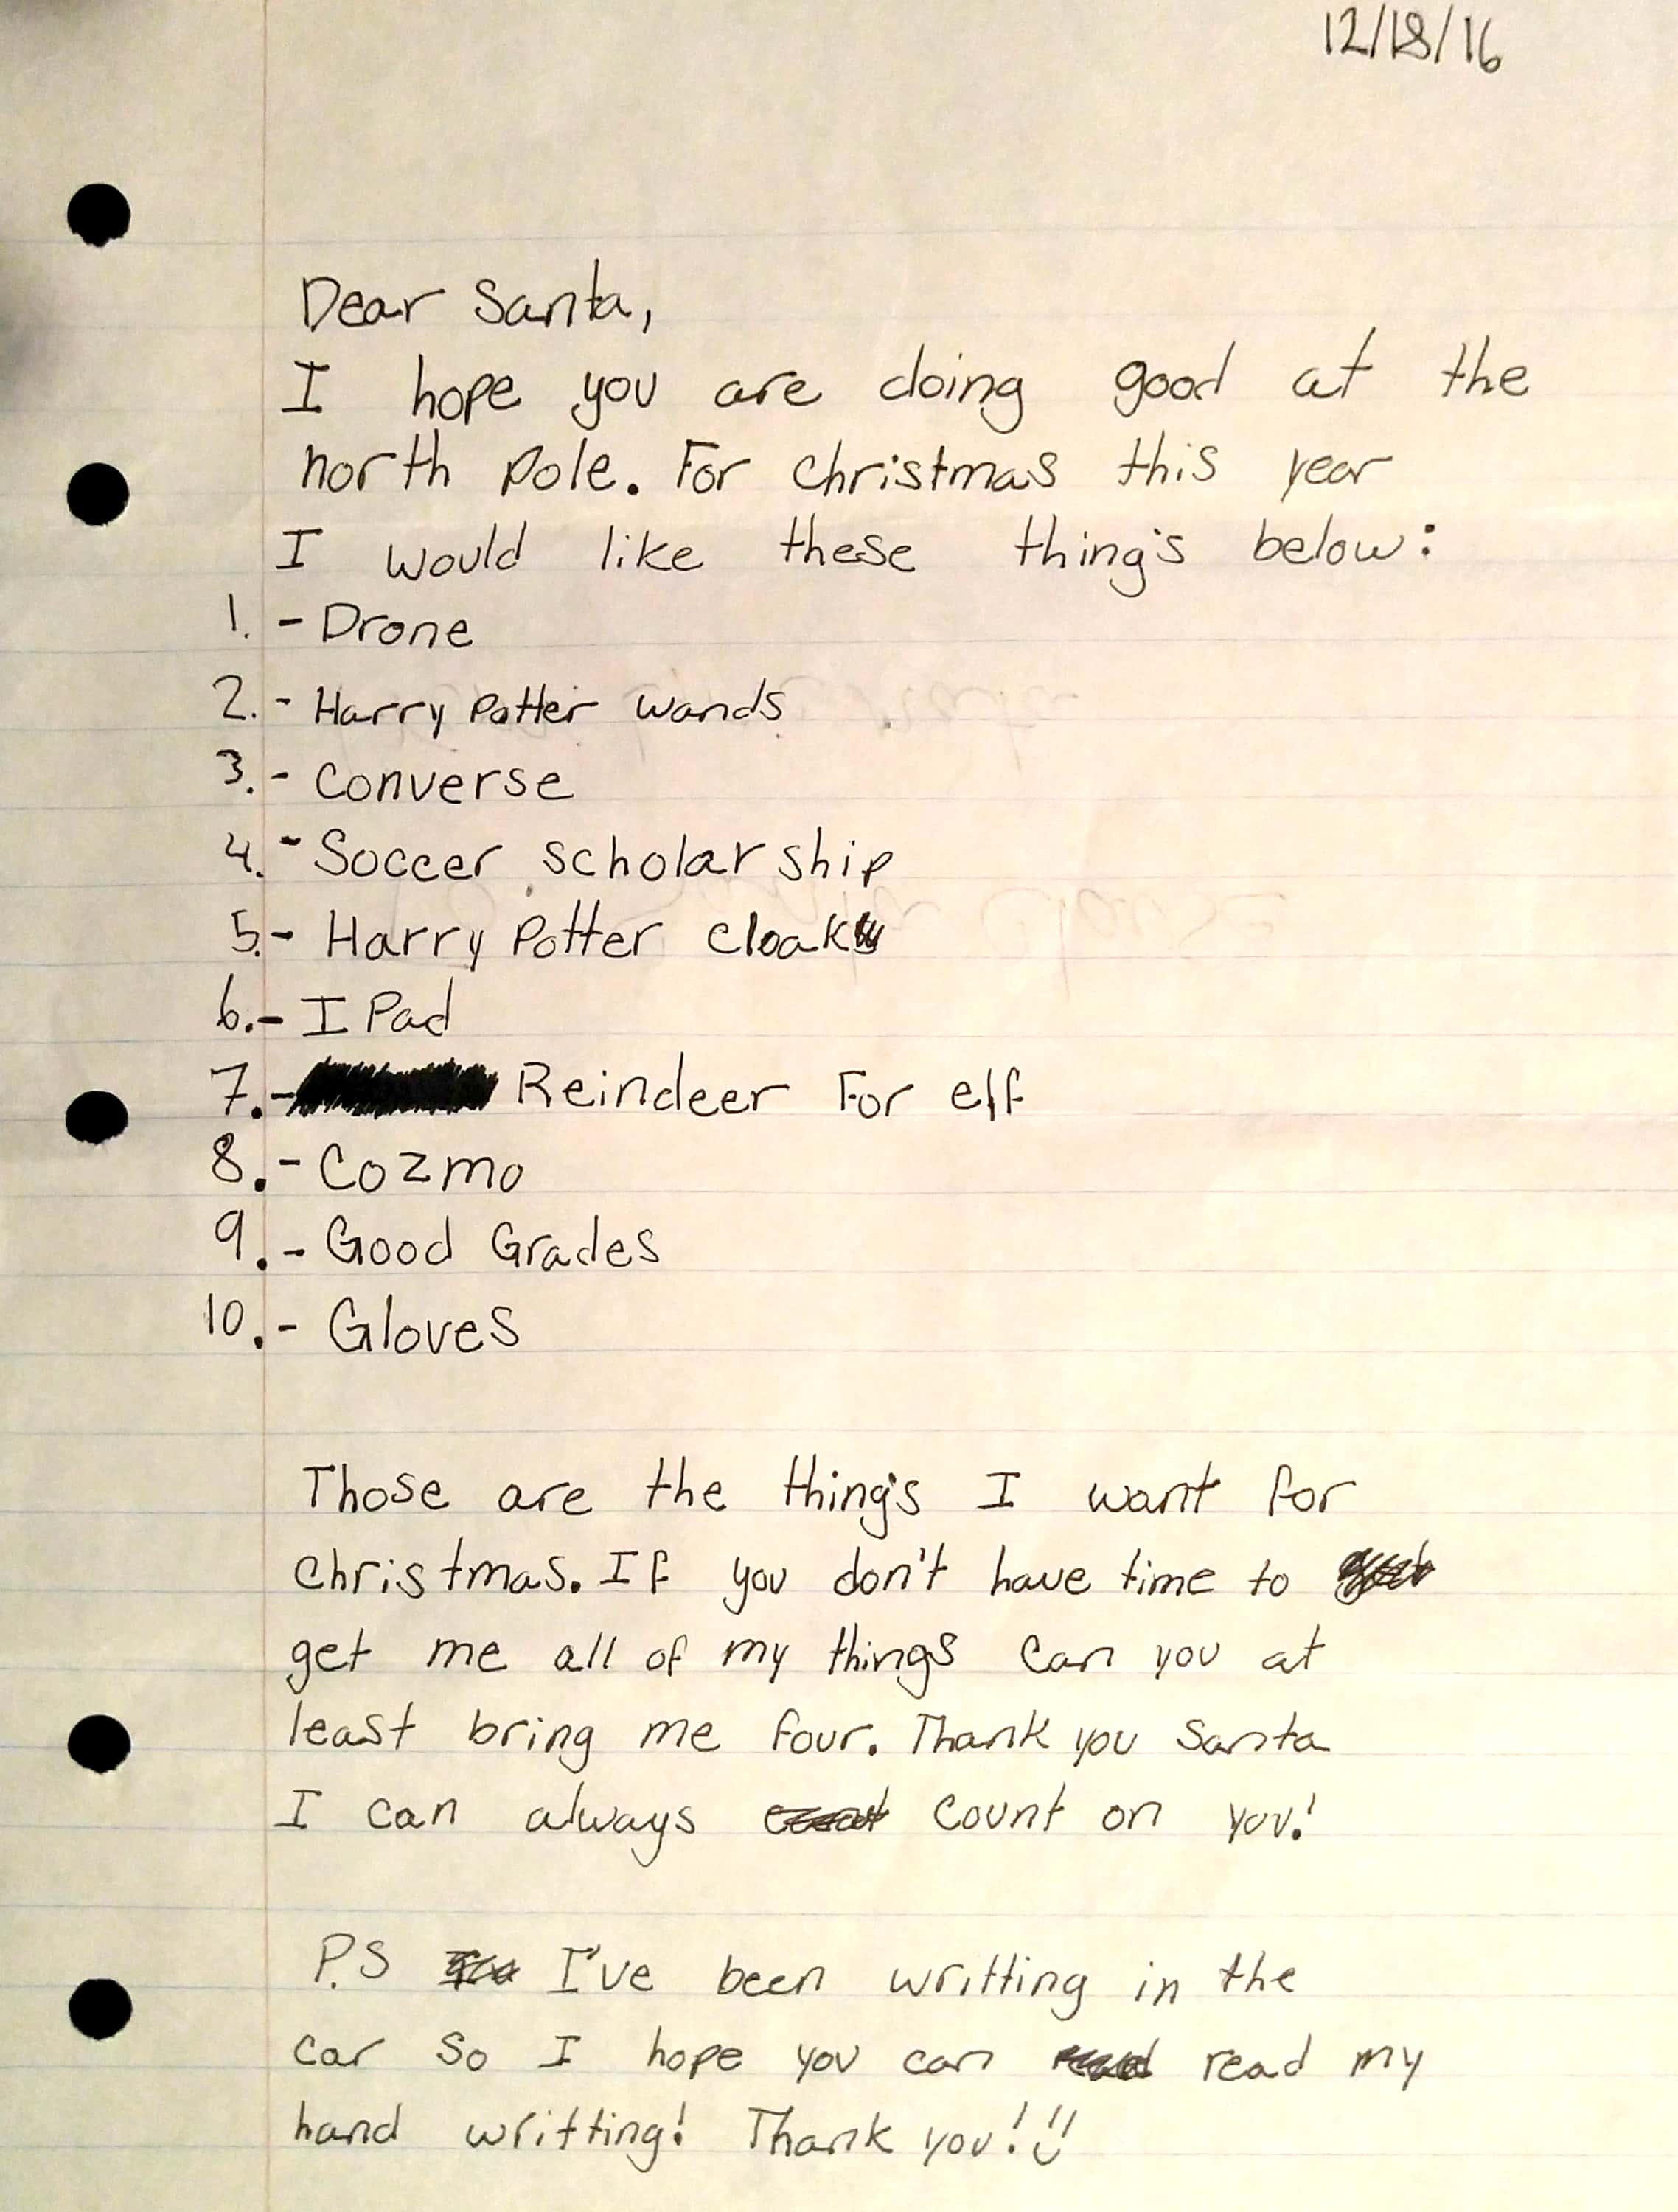 12/18/16
Dear Santa,
I hope you are doing good at the
north pole. For christmas this year
I would like these thing's below:
1. - Drone
2. - Harry Potter wands
3. - Converse
4. - Soccer scholarship
5. - Harry Potter cloak
6. - I Pad
7. - Reindeer For elf
8. - Cozmo
9. - Good Grades
10. - Gloves
Those are the thing's I want for
christmas. If you don't have time to
get me all of my things can you at
least bring me four. Thank you Santa
I can always count on you!
P.S I've been writting in the
car so I hope you can read my
hand writting! Thank you! :)